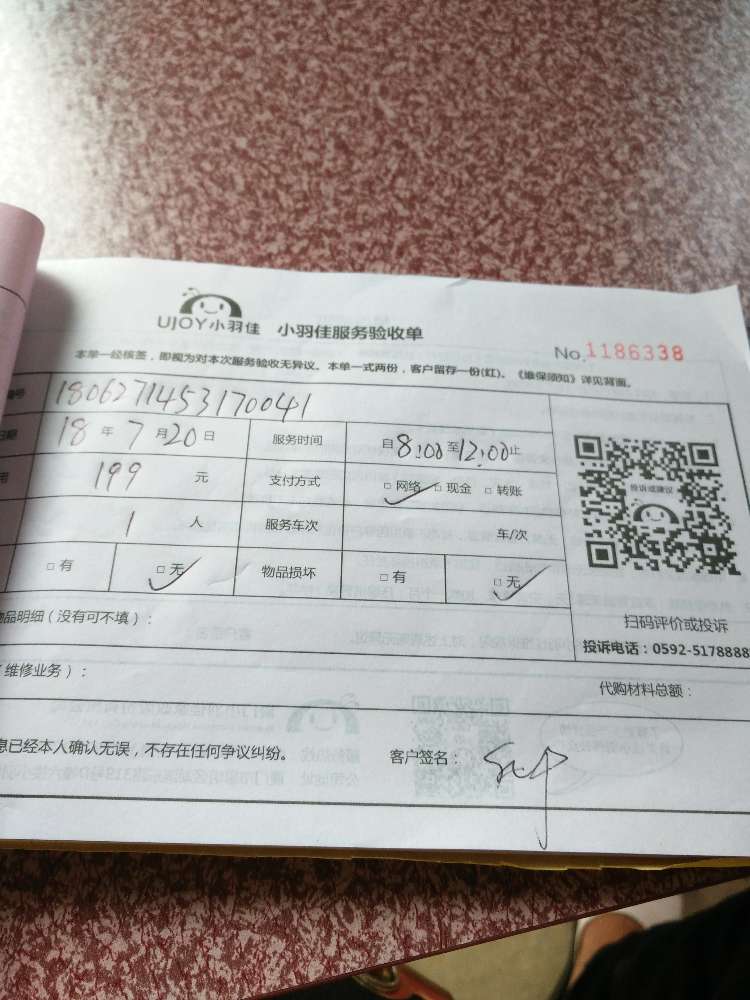 UJOY小羽佳 小羽佳服务验收单
No.1186338
本单一经核签，即视为对本次服务验收无异议。本单一式两份，客户留存一份(红)。《维保须知》详见背面。
编号 1806271453170041
日期 18 年 7 月 20 日 服务时间 自 8:00 至 12:00 止
用 199 元 支付方式 □ 网络 □ 现金 □ 转账
投诉或建议
1 人 服务车次 车/次
□ 有 □ 无 物品损坏 □ 有 □ 无
扫码评价或投诉
物品明细（没有可不填）：
投诉电话：0592-5178888
维修业务）：
代购材料总额：
息已经本人确认无误，不存在任何争议纠纷。 客户签名：